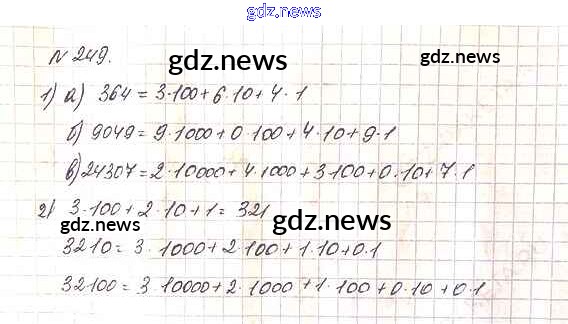 gdz.news
N 249.
gdz.news
gdz.news
1) а) 364 = 3·100+6·10+4·1
б) 9049 = 9·1000+0·100+4·10+9·1
в) 24307 = 2·10000+4·1000+3·100+0·10+7·1
2) 3·100+2·10+1 = 321
gdz.news
gdz.news
3210 = 3·1000+2·100+1·10+0·1
32100 = 3·10000+2·1000+1·100+0·10+0·1